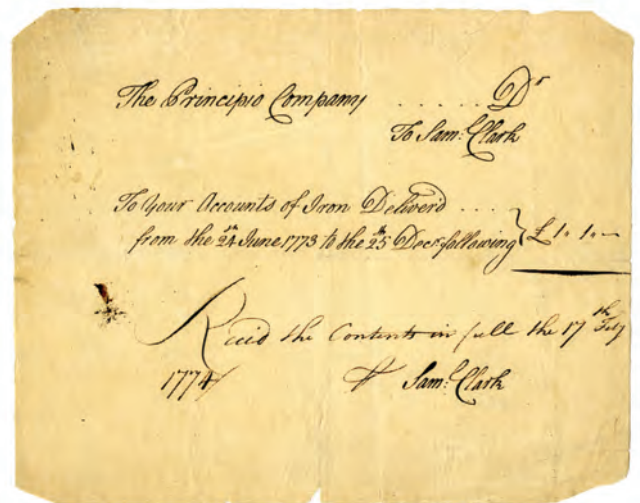 The Principio Company ..... Dr
To Saml. Clark
To Your Accounts of Iron Deliver'd ....
from the 24th June 1773 to the 25th Decr. following } £ 1. 1. —
Receid the Contents in full the 17th Feby
1774 ⅌ Saml. Clark